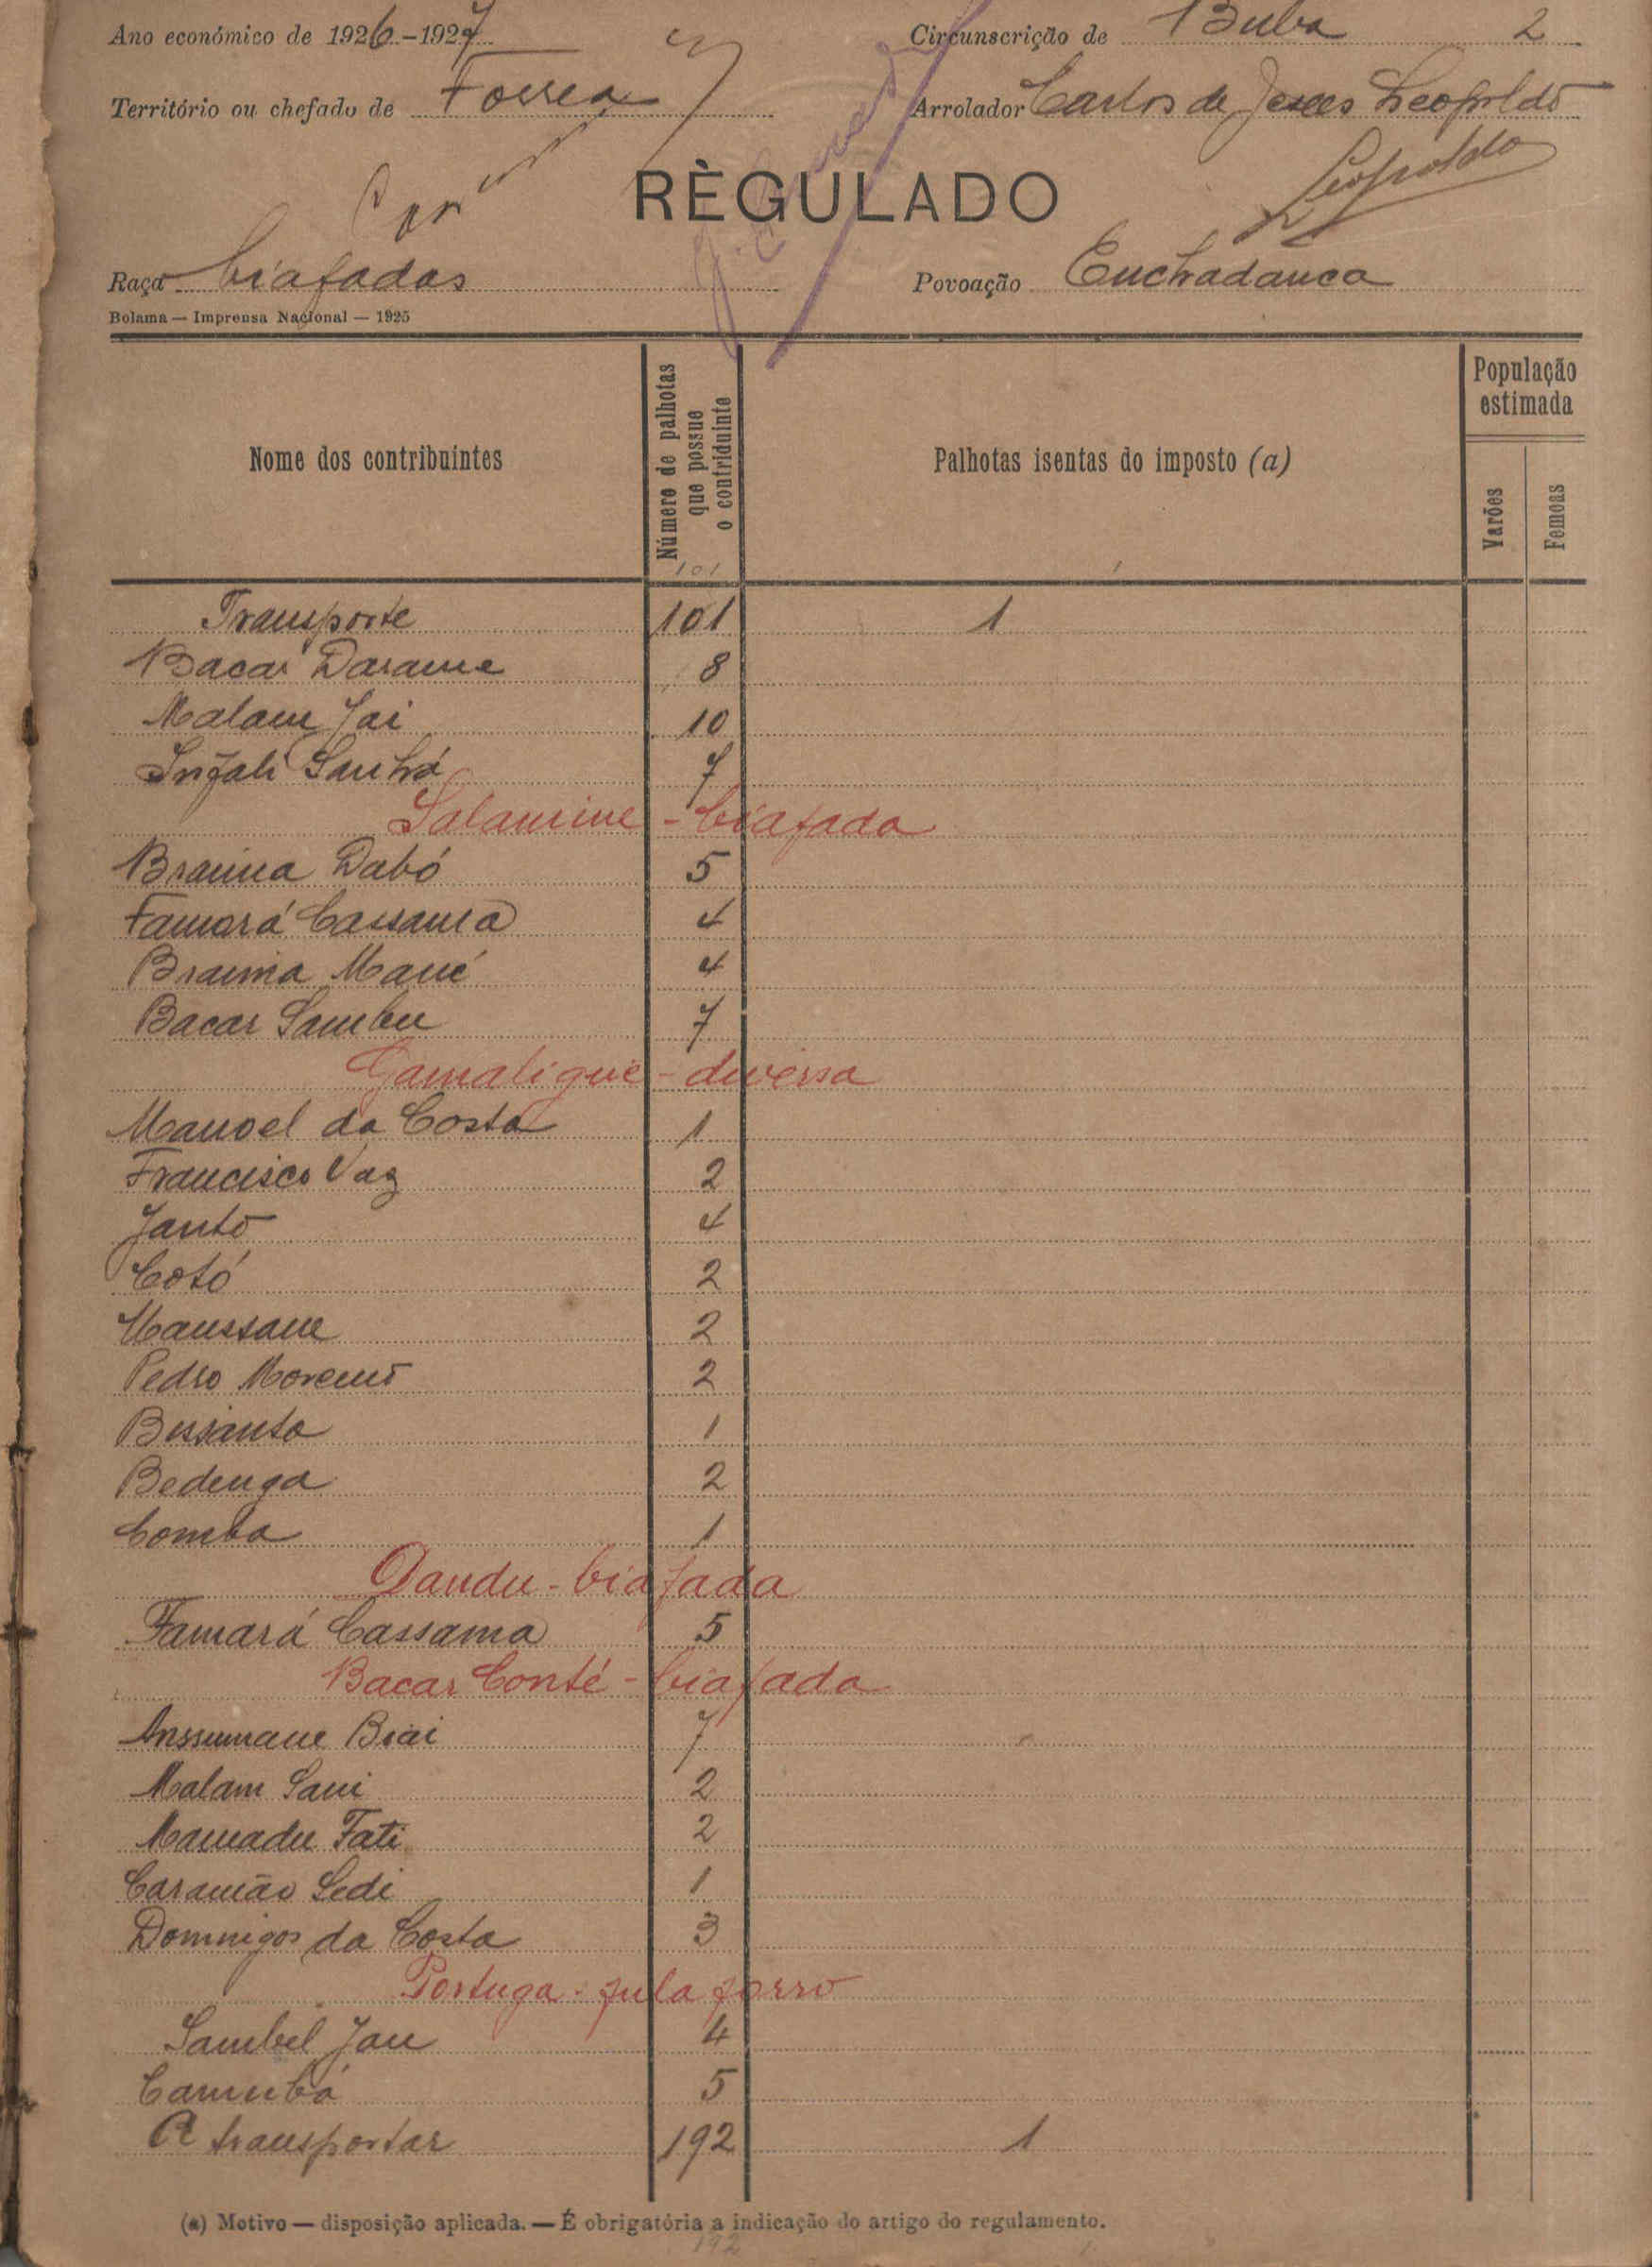 Ano económico de 1926-1927 Circunscrição de Buba 2
Território ou chefado de Forrea Arrolador Carlos de Jesus Leopoldo
Leopoldo
RÈGULADO
Raça biafadas Povoação
Bolama — Imprensa Nacional — 1925
Nome dos contribuintes
Número de palhotas que possue o contriduinte
Palhotas isentas do imposto (a)
População estimada
Varões
Femeas
101
Transporte 101 1
Bacar Darame 8
Malam Jai 10
Injali Sanhá 7
Salamine - biafada
Braima Dabó 5
Famará Cassama 4
Braima Mané 4
Bacar Sambu 7
Gamaligue - diversa
Manoel da Costa 1
Francisco Vaz 2
Janto 4
Cotó 2
Maussane 2
Pedro Moreno 2
Bussanta 1
Bedenga 2
Comba 1
Dandu - biafada
Famará Cassama 5
Bacar Conté - biafada
Anssumane Biai 7
Malam Sani 2
Mamadu Fati 2
Caramão Sedi 1
Domingos da Costa 3
Portuga - fula forro
Sambel Jau 4
Camubá 5
A transportar 192 1
(a) Motivo — disposição aplicada. — É obrigatória a indicação do artigo do regulamento.
192